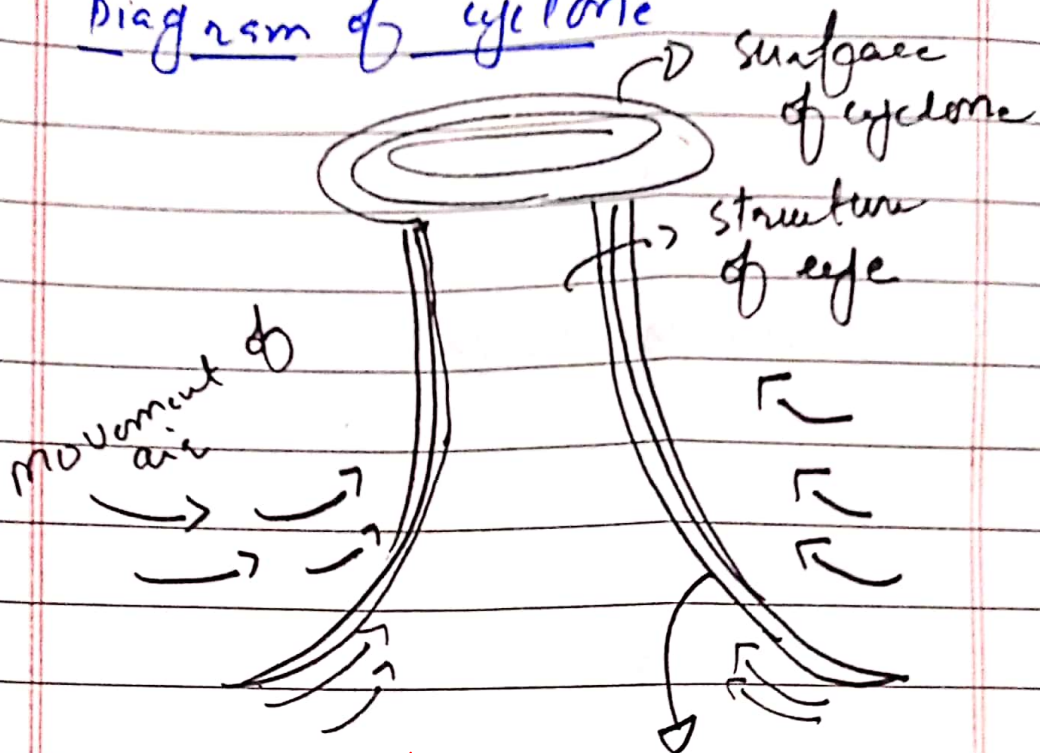 Diagram of cyclone
surface
of cyclone
structure
of eye
movement of
air